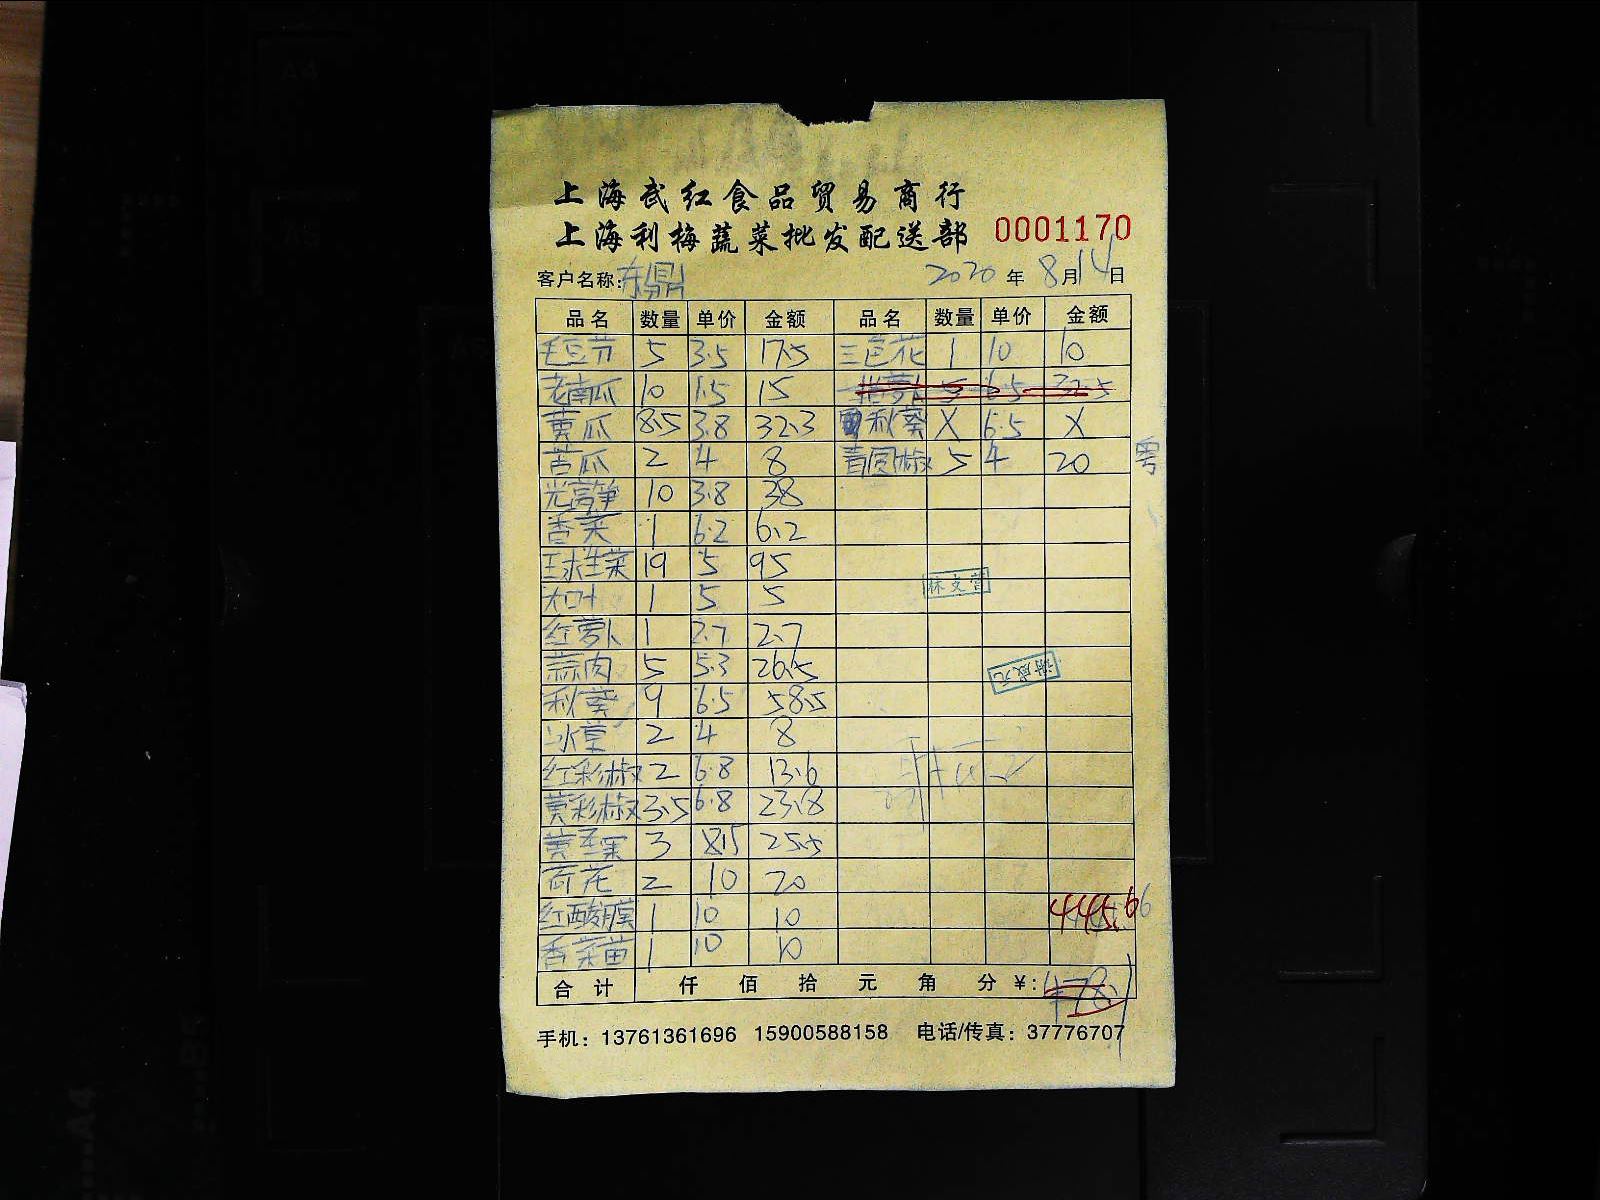 上海武红食品贸易商行
上海利梅蔬菜批发配送部 0001170
客户名称: 东鼎 2020 年 8 月 14 日
品名 数量 单价 金额 品名 数量 单价 金额
毛豆节 5 3.5 17.5 三色花 1 10 10
老南瓜 10 1.5 15 5 6.5 32.5
黄瓜 8.5 3.8 32.3 秋葵 X 6.5 X
苦瓜 2 4 8 青圆椒 5 4 20
光莴笋 10 3.8 38
香菜 1 6.2 6.2
球生菜 19 5 95
1 5 5
红萝卜 1 2.7 2.7
蒜肉 5 5.3 26.5
秋葵 9 6.5 58.5
冰草 2 4 8
红彩椒 2 6.8 13.6
黄彩椒 3.5 6.8 23.8
黄圣果 3 8.5 25.5
荷花 2 10 20
红酸膜 1 10 10
香菜苗 1 10 10
445.6
合计 仟 佰 拾 元 角 分 ¥: 478.1
手机: 13761361696 15900588158 电话/传真: 37776707